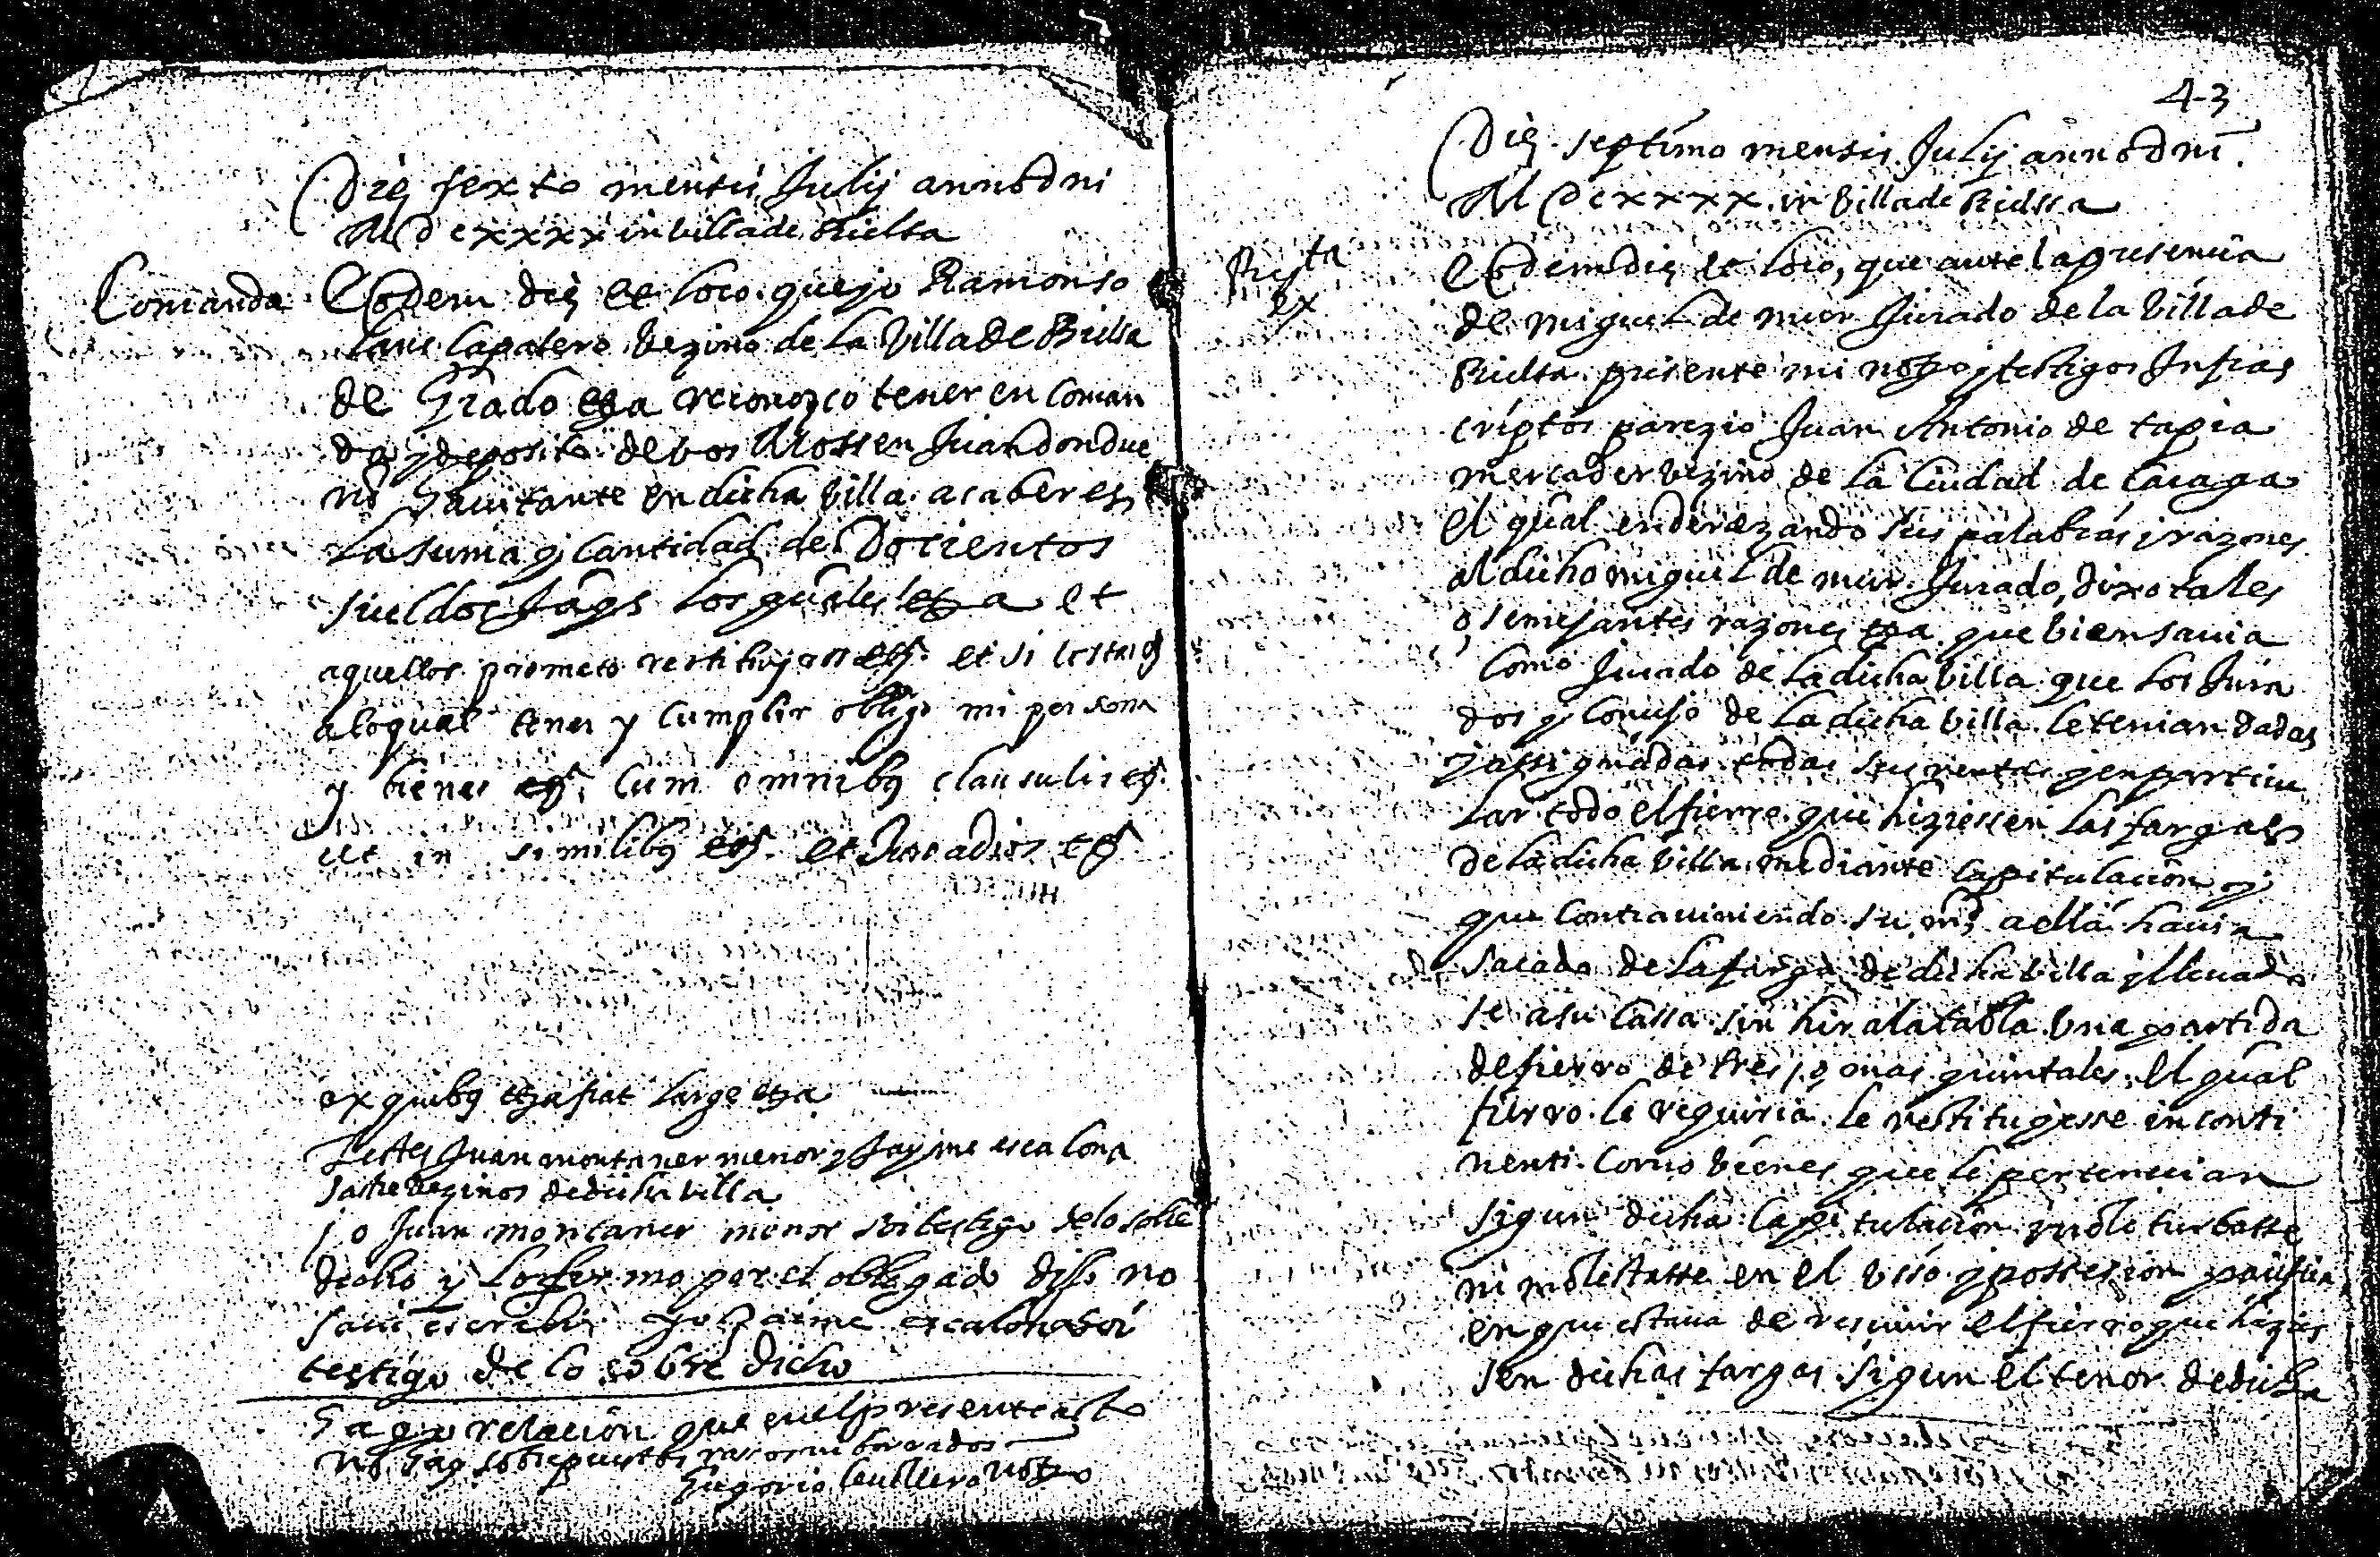 Die sexto mensis Julij anno dni
M D cxxxx in villa de Bielsa
Comanda
Eodem die et loco. que yo Ramon so
lans capatero vezino de la Villa de Bielsa
de Grado etza reconozco tener en coman
da y deposito de vos Mossen Juan don due
no havitante en dicha villa. a caber es
la suma y cantidad de Docientos
sueldos Jaqs los quales etza et
aquellos prometo restituyr os etz. et si costas etz
a lo qual tener y cumplir obligo mi persona
y bienes etz. cum omnibq clausulis etz.
ut in similibq etz. et Juro a dios etz
ex quibq etza fiat large etza
Testes Juan montaner menor y Jayme escalona
sastre vezinos de dicha villa
jo Juan montaner menor soi testigo de lo sobre
dicho y lo firmo por el obligado diss no
savi escribir yo Jaime escalona soi
testigo de lo sobre dicho
Hago relacion que en el presente acto
no hay sobrepuestos rasos ni borrados
Gregorio Cavallero noto
43
Die septimo mensis Julij anno dni
M D cxxxx. in villa de Bielssa
Eodem die et loco, que ante la presencia
de miguel de mur Jurado de la villa de
Bielsa presente mi noto y testigos Infras
criptos parezio Juan Antonio de tapia
mercader vezino de la Ciudad de Caraga
el qual enderezando sus palabras j razones
al dicho miguel de mur Jurado, dixo tales
o, semejantes razones etza que bien savia
como Jurado de la dicha villa que los Jura
dos y Consejo de la dicha villa le tenian dadas
y assignadas todas sus rentas y en particu
lar todo el fierro que hiziessen las fargas
de la dicha villa mediante capitulacion y
que contraviniendo su md a ella havia
sacado de la farga de dicha villa y llevado
se a su cassa sin hir a la tabla una partida
de fierro de tres, o mas quintales, el qual
fierro le requiria le restituyesse in conti
nenti como bienes que le pertenecian
sigun dicha capitulacion y no le turbasse
ni molestasse en el usso y possesion pacifica
en que estava de recivir el fierro que hizies
sen dichas fargas sigun el tenor de dicha